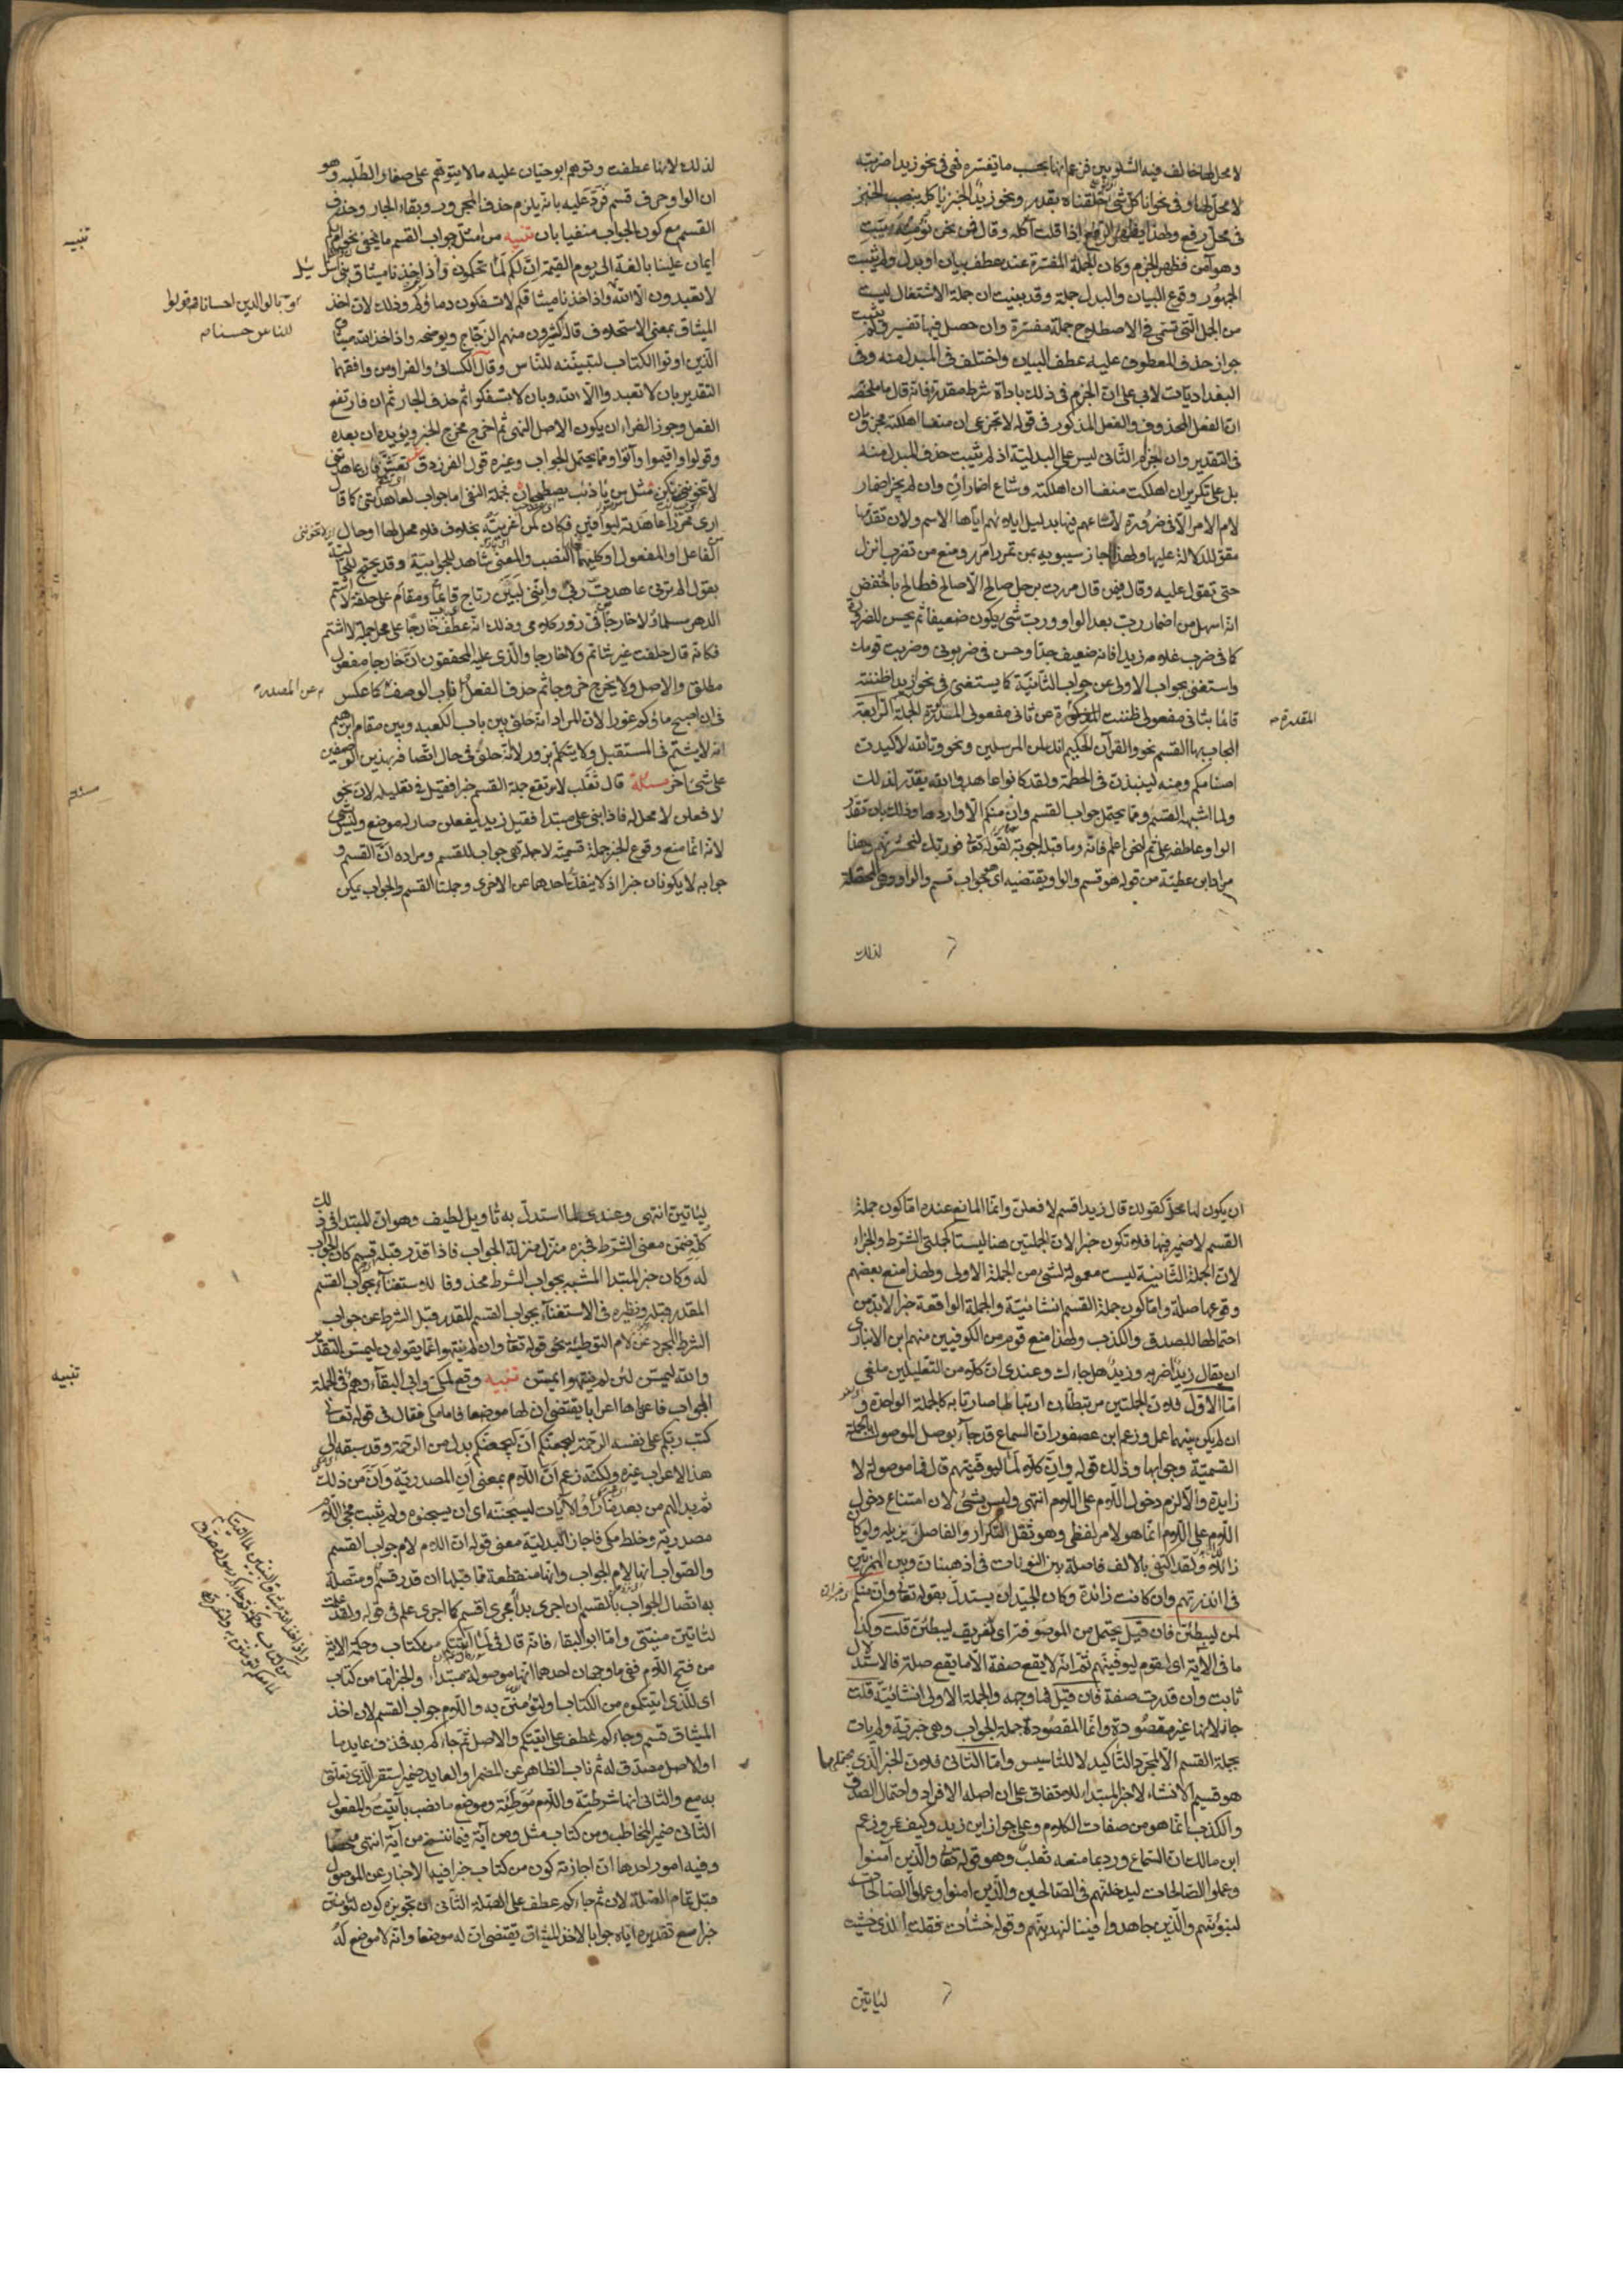 لا محل لها خالف فيه الشلوبين فزعم انها بحسب ما تفسره فهي في نحو زيدا ضربته
لا محل لها وفي نحو انا كل شئ خلقناه بقدر ونحو زيد الخبز ياكله بنصب الخبز
في محل رفع ولهذا يظهر الرفع اذا قلت آكله وقال فمن نحن نؤمنه يبت
وهو آمن فظهر الجزم وكان الجملة المفسرة عنده عطف بيان او بدل ولم يثبت
الجمهور وقوع البيان والبدل جملة وقد بينت ان جملة الاشتغال ليست
من الجمل التي تسمى في الاصطلاح جملة مفسرة وان حصل فيها تفسير ولم يثبت
جواز حذف المعطوف عليه عطف البيان واختلف في المبدل منه وفي
البغداديات لابي علي ان الجزم في ذلك باداة شرط مقدرة فانه قال ما ملخصه
ان الفعل المحذوف والفعل المذكور في قوله لا تجزعي ان منفسا اهلكته مجزومان
في التقدير وان انجزام الثاني ليس على البدلية اذ لم يثبت حذف المبدل منه
بل على تكرير ان اهلكت منفسا ان اهلكته وساغ اضمار ان وان لم يجز اضمار
لام الامر الا في ضرورة لاتساعهم فيها بدليل ايلائهم اياها الاسم ولان تقدمها
مقو للدلالة عليها ولهذا اجاز سيبويه بمن تمرر امرر ومنع من تضرب انزل
حتى تقول عليه وقال فيمن قال مررت برجل صالح الا صالح فطالح بالخفض
انه اسهل من اضمار رب بعد الواو ورب شئ يكون ضعيفا ثم يحسن للضرورة
كما في ضرب غلامه زيدا فانه ضعيف جدا وحسن في ضربوني وضربت قومك
واستغني بجواب الاولى عن جواب الثانية كما يستغنى في نحو ازيدا ظننته
قائما بثاني مفعولي ظننت المذكورة عن ثاني مفعولي المقدرة الجملة الرابعة
المقدرة صح
المجاب بها القسم نحو والقرآن الحكيم انك لمن المرسلين ونحو وتالله لاكيدن
اصنامكم ومنه لينبذن في الحطمة ولقد كانوا عاهدوا الله يقدر لذلك
ولما اشبهه القسم ومما يحتمل جواب القسم وان منكم الا واردها وذلك بان تقدر
الواو عاطفة على ثم لنحن اعلم فانه وما قبله اجوبة لقوله تعالى فوربك لنحشرنهم وهذا
مراد ابن عطية من قوله هو قسم والواو يقتضيه اي هو جواب قسم والواو هي المحصلة
لذلك
لذلك لانها عطفت وتوهم ابو حيان عليه ما لا يتوهم على صغار الطلبة وهو
ان الواو حرف قسم فرد عليه بانه يلزم حذف المجرور وبقاء الجار وحذف
القسم مع كون الجواب منفيا بان تنبيه من امثلة جواب القسم ما يخفى نحو ام لكم
تنبيه
ايمان علينا بالغة الى يوم القيمة ان لكم لما تحكمون واذ اخذنا ميثاق بني اسرائيل
لا تعبدون الا الله واذ اخذنا ميثاقكم لا تسفكون دماءكم وذلك لان اخذ
وبالوالدين احسانا وقولوا
للناس حسنا صح
الميثاق بمعنى الاستحلاف قاله كثيرون منهم الزجاج ويوضحه واذ اخذ الله ميثاق
الذين اوتوا الكتاب لتبيننه للناس وقال الكسائي والفراء ومن وافقهما
التقدير بان لا تعبدوا الا الله وبان لا تسفكوا ثم حذف الجار ثم ان فارتفع
الفعل وجوز الفراء ان يكون الاصل النهي ثم اخرج مخرج الخبر ويؤيده ان بعده
وقولوا واقيموا وآتوا ومما يحتمل الجواب وغيره قول الفرزدق تعش فان عاهدتني
لا تخونني نكن مثل من يا ذئب يصطحبان فجملة النفي اما جواب لعاهدتني كما قال
ارى محرزا عاهدته ليوافقن فكان كمن اغريته بخلاف فلا محل لها او حال
من الفاعل او المفعول او كليهما فمحلها النصب والمعنى شاهد للجوابية وقد يحتج للحالية
بقوله الم ترني عاهدت ربي وانني لبين رتاج قائما ومقام على حلفة لا اشتم
الدهر مسلما ولا خارجا من في زور كلام وذلك انه عطف خارجا على محل جملة لا اشتم
فكانه قال حلفت غير شاتم ولا خارجا والذي عليه المحققون ان خارجا مفعول
مطلق والاصل ولا يخرج خروجا ثم حذف الفعل واناب الوصف كما عكس
عن المصدر
في ان اصبح ماؤكم غورا لان المراد انه حلف بين باب الكعبة وبين مقام ابرهيم
انه لا يشتم في المستقبل ولا يتكلم بزور لا انه حلف في حال اتصافه بهذين الوصفين
على شئ آخر مسئلة قال ثعلب لا تقع جملة القسم خبرا فقيل في تعليله لان نحو
مسئلة
لافعلن لا محل له فاذا بني على مبتدأ فقيل زيد ليفعلن صار له موضع وليس بشئ
لانه انما منع وقوع الخبر جملة قسمية لا جملة هي جواب للقسم ومراده ان القسم و
جوابه لا يكونان خبرا اذ لا ينفك احدهما عن الاخرى وجملتا القسم والجواب يمكن
ان يكون لها محل كقولك قال زيد اقسم لافعلن وانما المانع عنده اما كون جملة
القسم لا ضمير فيها فلا تكون خبرا لان الجملتين هنا ليستا كجملتي الشرط والجزاء
لان الجملة الثانية ليست معمولة لشئ من الجملة الاولى ولهذا منع بعضهم
وقوعها صلة واما كون جملة القسم انشائية والجملة الواقعة خبرا لابد من
احتمالها للصدق والكذب ولهذا منع قوم من الكوفيين منهم ابن الانباري
ان يقال زيد اضربه وزيد هل جاءك وعندي ان كلا من التعليلين ملغى
اما الاول فلان الجملتين مرتبطتان ارتباطا صارتا به كالجملة الواحدة و
ان لم يكن بينهما عمل وزعم ابن عصفور ان السماع قد جاء بوصل الموصول بالجملة
القسمية وجوابها وذلك قوله وان كلا لما ليوفينهم قال فما موصولة لا
زايدة والا لزم دخول اللام على اللام انتهى وليس بشئ لان امتناع دخول
اللام على اللام انما هو لامر لفظي وهو ثقل التكرار والفاصل يزيله ولو كان
زائدا ولقد اكتفى بالالف فاصلة بين النونات في اذهبنان وبين الهمزتين
في أانذرتهم وان كانت زائدة وكان الجيد ان يستدل بقوله تعالى وان منكم
لمن ليبطئن فان قيل يحتمل من الموصوفة اي لفريق ليبطئن قلت وكذا
ما في الآية اي لقوم ليوفينهم ثم انه لا يقع صفة الا ما يقع صلة فالاستدلال
ثابت وان قدرت صفة فان قيل فما وجهه والجملة الاولى انشائية قلت
جاز لانها غير مقصودة وانما المقصودة جملة الجواب وهي خبرية ولم يات
بجملة القسم الا لمجرد التاكيد لا للتاسيس واما الثاني فلان الخبر الذي
هو قسيم الانشاء لا خبر المبتداء للاتفاق على ان اصله الافراد واحتمال الصدق
والكذب انما هو من صفات الكلام وعلى جواز اين زيد وكيف عمرو وزعم
ابن مالك ان السماع ورد بما منعه ثعلب وهو قوله تعالى والذين آمنوا
وعملوا الصالحات لندخلنهم في الصالحين والذين امنوا وعملوا الصالحات
لنبوئنهم والذين جاهدوا فينا لنهدينهم وقوله خشأت فقلت الذي خشيت
لياتين
لياتين انتهى وعندي لما استدل به تأويل لطيف وهو ان المبتدأ في ذلك
كله ضمن معنى الشرط فخبره منزل منزلة الجواب فاذا قدر قبله قسم كان الجواب
له وكان خبر المبتدا المشبه بجواب الشرط محذوفا للاستغناء بجواب القسم
المقدر قبله ونظيره في الاستغناء بجواب القسم المقدر قبل الشرط عن جواب
الشرط المجرد عن لام التوطئة نحو قوله تعالى وان لم ينتهوا عما يقولون ليمسن التقدير
والله ليمسن لئن لم ينتهوا ليمسن تنبيه وقع لمكي وابي البقاء وهم في الجملة
تنبيه
الجواب فاعرباها اعرابا يقتضي ان لها موضعا فاما مكي فقال في قوله تعالى
كتب ربكم على نفسه الرحمة ليجمعنكم ان ليجمعنكم بدل من الرحمة وقد سبقه الى
هذا الاعراب غيره ولكنه زعم ان اللام بمعنى ان المصدرية وان من ذلك
ثم بدا لهم من بعد ما رأوا الآيات ليسجننه اي ان يسجنوه ولم يثبت مجئ اللام
مصدرية وخلط مكي فاجاز البدلية مع قوله ان اللام لام جواب القسم
والصواب انها لام الجواب وانها منقطعة مما قبلها ان قدر قسم او متصلة
به اتصال الجواب بالقسم ان اجري بدا مجرى اقسم كما اجري علم في قوله ولقد علمت
لتاتين منيتي واما ابو البقاء فانه قال في لما آتيتكم من كتاب وحكمة الآية
من فتح اللام ففي ما وجهان احدهما انها موصولة مبتداء والخبر اما من كتاب
اي للذي اتيتكموه من الكتاب او لتؤمنن به واللام جواب القسم لان اخذ
الميثاق قسم وجاءكم عطف على اتيتكم والاصل ثم جاءكم به فحذف عايد ما
او الاصل مصدق له ثم ناب الظاهر عن المضمر او العايد ضمير استقر الذي تعلق
به مع والثاني انها شرطية واللام موطئة وموضع ما نصب بآتيت والمفعول
الثاني ضمير المخاطب ومن كتاب مثل ومن آية فيما ننسخ من آية انتهى ملخصا
وفيه امور احدها ان اجازته كون من كتاب خبرا فيه الاخبار عن الموصول
قبل تمام الصلة لان ثم جاءكم عطف على الصلة الثاني ان تجويزه كون لتؤمنن
خبرا مع تقديره اياه جوابا لاخذ الميثاق يقتضي ان له موضعا وانه لا موضع له